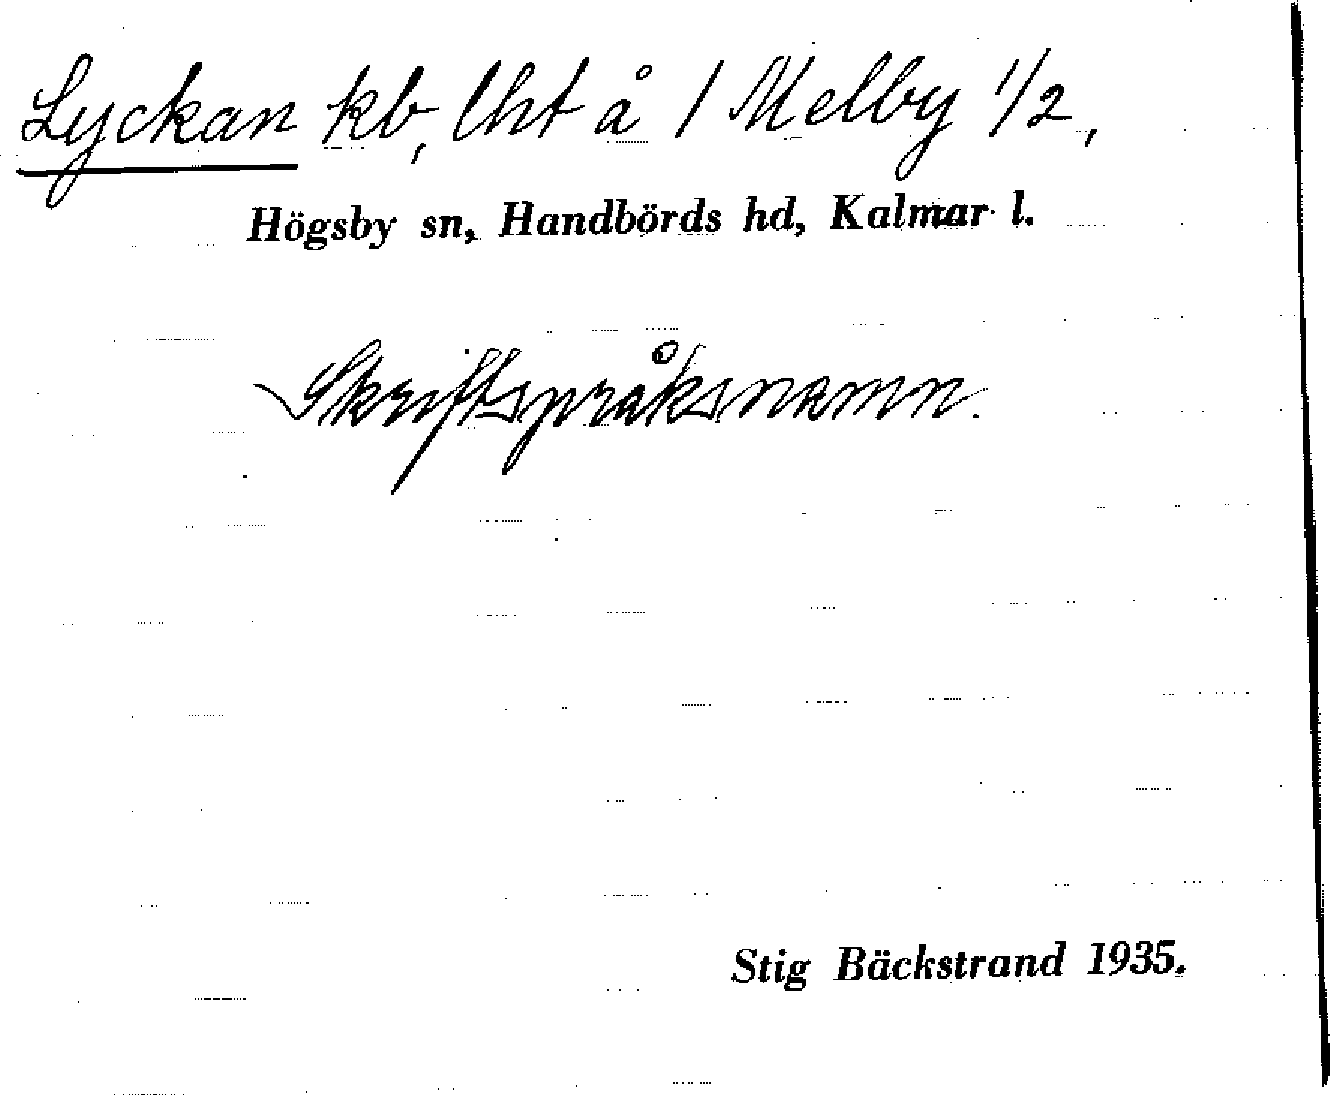 Lyckan kb, lht å 1 Melby 1/2,
Högsby sn, Handbörds hd, Kalmar l.
Skriftspråksnamn.
Stig Bäckstrand 1935.